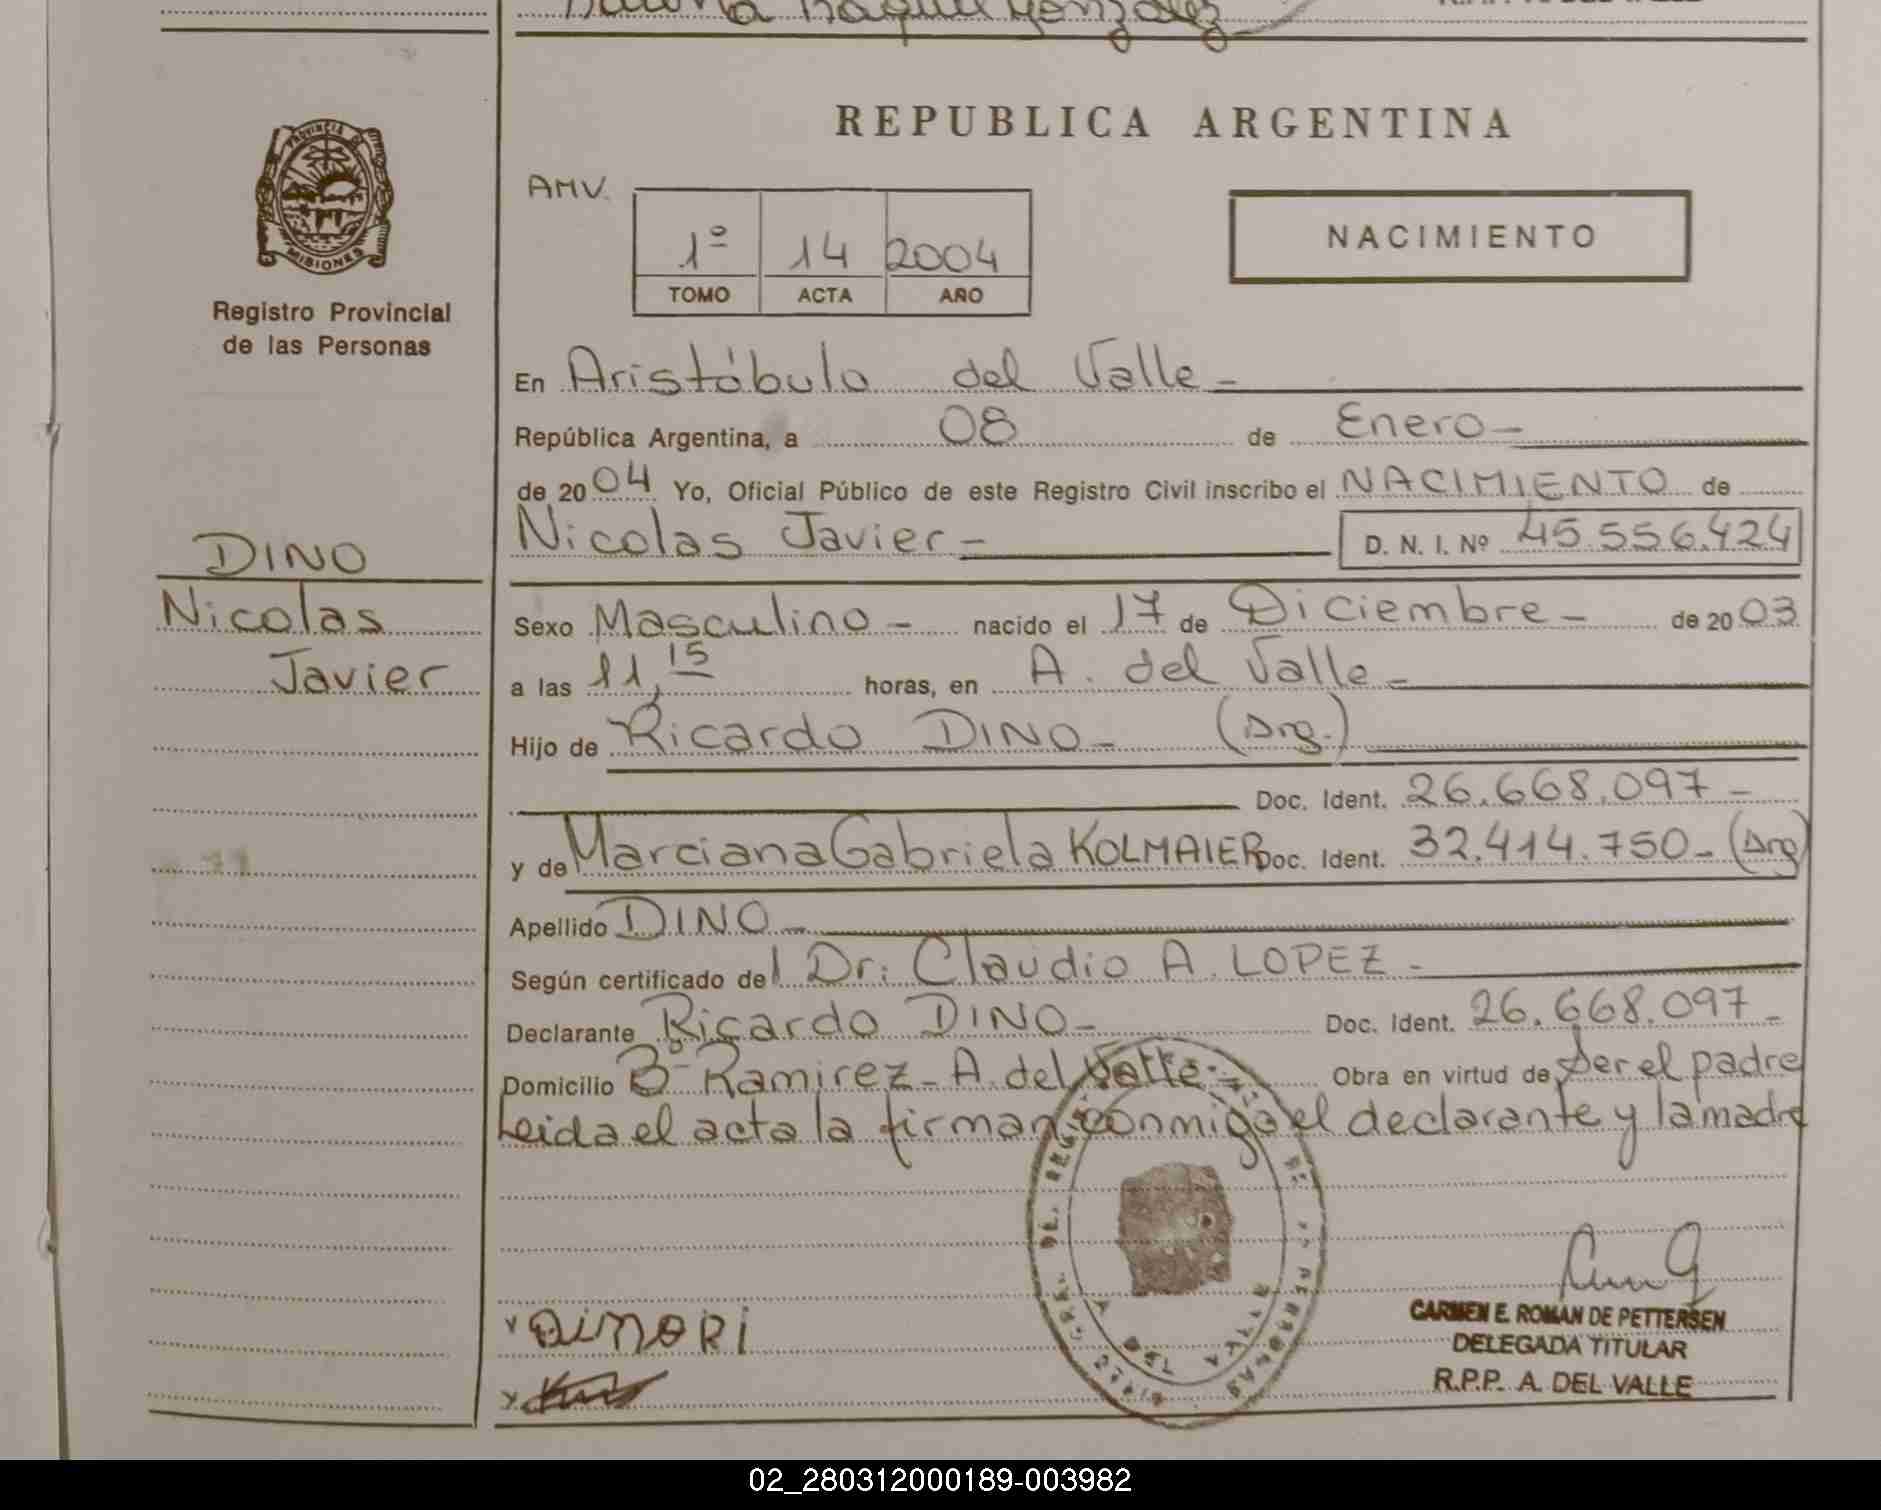 Raquel Gonzalez
REPUBLICA ARGENTINA
PROVINCIA DE
MISIONES
Registro Provincial
de las Personas
AMV.
1º 14 2004
TOMO ACTA AÑO
NACIMIENTO
En Aristóbulo del Valle -
República Argentina, a 08 de Enero -
de 2004 Yo, Oficial Público de este Registro Civil inscribo el NACIMIENTO de
Nicolas Javier - D. N. I. Nº 45.556.424
DINO
Nicolas
Javier
Sexo Masculino - nacido el 17 de Diciembre - de 2003
a las 11,15 horas, en A. del Valle -
Hijo de Ricardo DINO - (Arg.)
Doc. Ident. 26.668.097 -
y de Marciana Gabriela KOLMAIER Doc. Ident. 32.414.750 - (Arg)
Apellido DINO -
Según certificado del Dr. Claudio A. LOPEZ -
Declarante Ricardo DINO - Doc. Ident. 26.668.097 -
Domicilio Bº Ramirez - A. del Valle - Obra en virtud de ser el padre
Leida el acta la firman conmigo el declarante y la madre
DINO RI
CARMEN E. ROMAN DE PETTERSEN
DELEGADA TITULAR
R.P.P. A. DEL VALLE
02_280312000189-003982